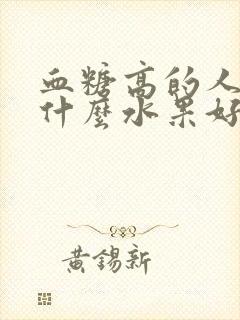 血糖高的人
什麼水果好
黃錫新